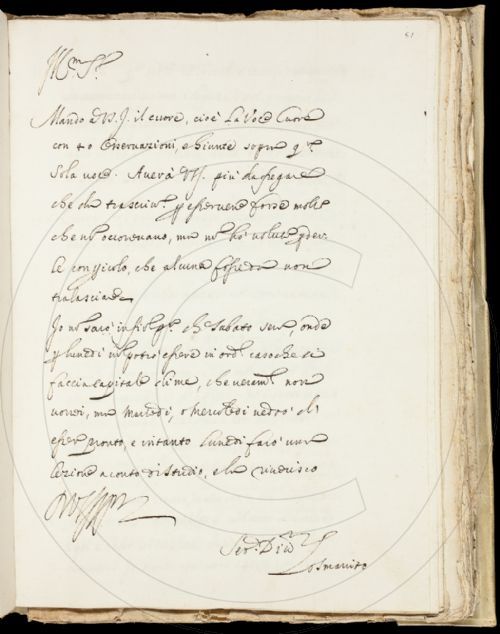 51
Ill.mo Sr.
Mando a V.S. il cuore, cioè La Voce Cuore
con osservazioni, e Giunte sopra q.ta
Sola voce. Averà V.S. più da fregare
che da trascriv.e p esservene forse molte
che nō occorrevano, ma nō hò voluto
le con pericolo, che alcuna fosse da non
tralasciare
Io nō sarò in che Sabato sera, onde
p lunedì nō potrò essere in ord.e caso che si
faccia capitale di me, che veram.te non
vorrei, ma Martedì, o Mercoledì vedrò di
esser pronto, e intanto Lunedì farò una
lezione a conto di studio, e la riverisco
Ser.e
osmarito